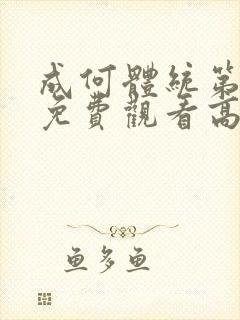 成何體統第
免費觀看高
鱼多鱼